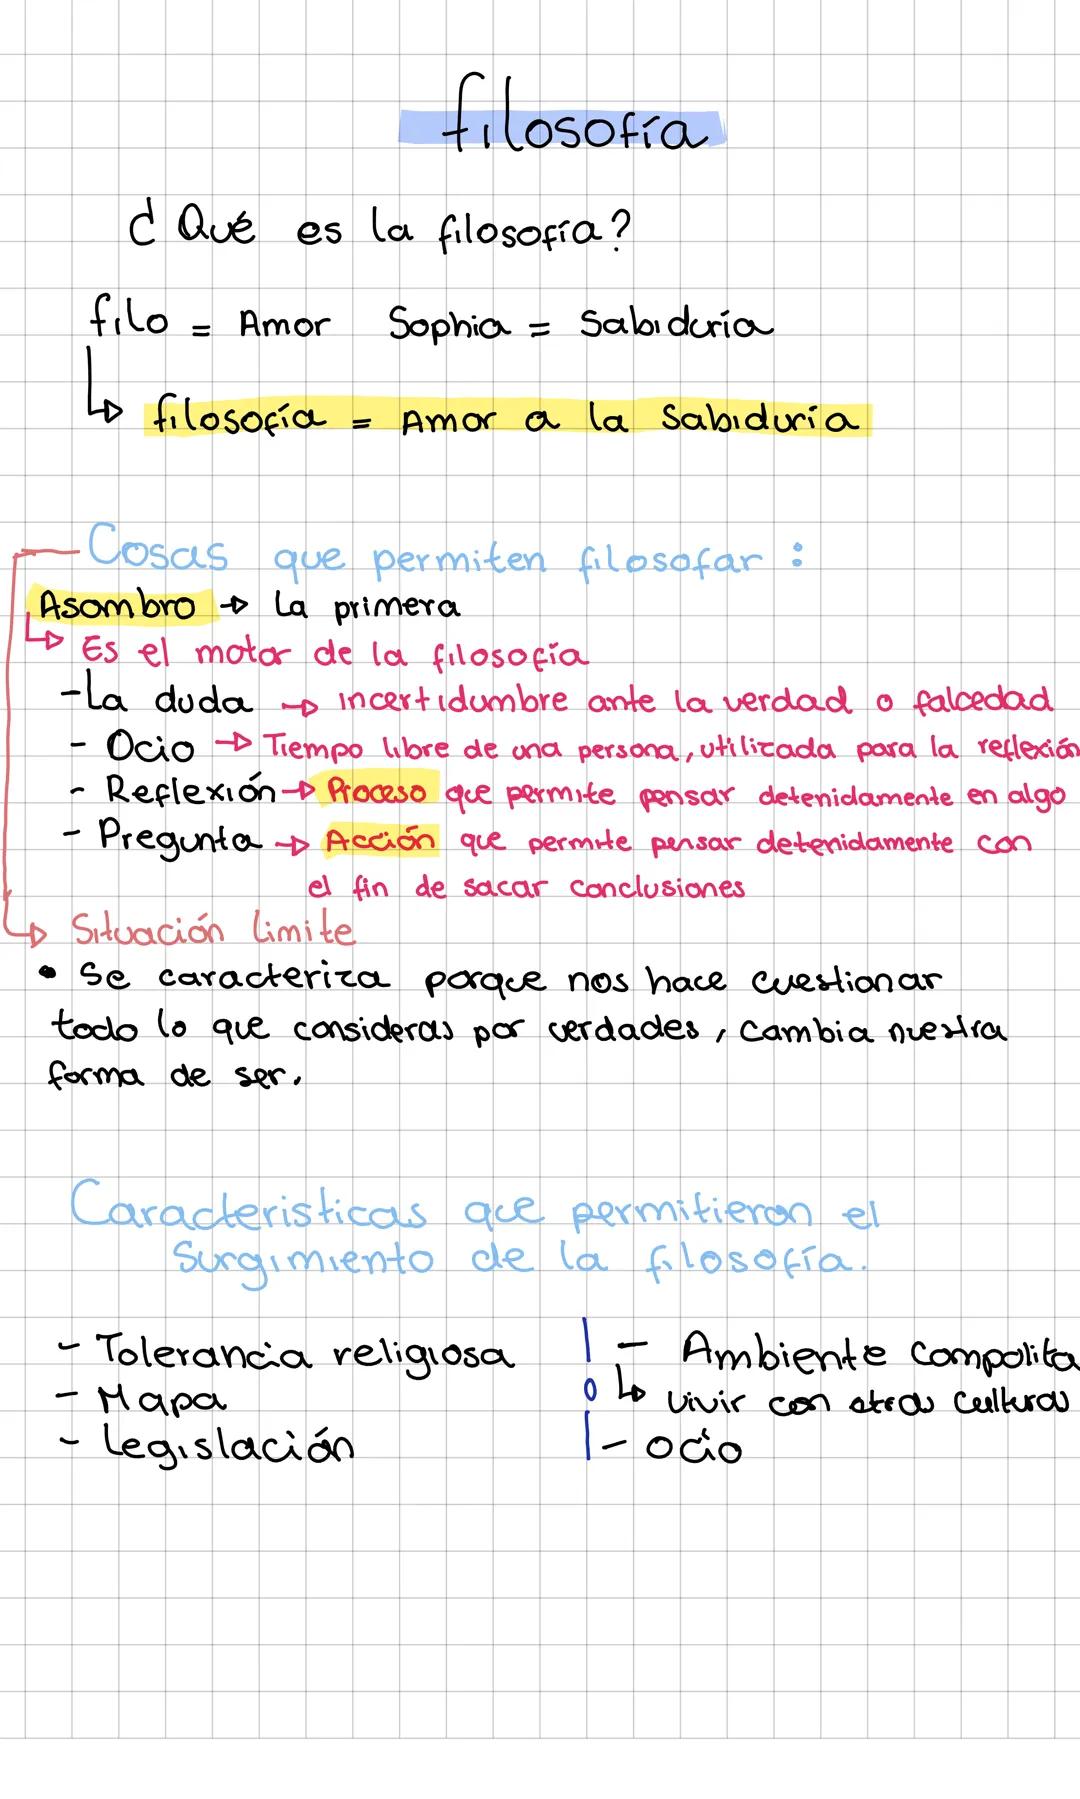 filosofía
¿Qué es la filosofía?
filo = Amor Sophia = Sabiduría
filosofía = Amor a la Sabiduría
Cosas que permiten filosofar:
Asombro → La primera
Es el motor de la filosofía
-La duda → incertidumbre ante la verdad o falcedad
- Ocio → Tiempo libre de una persona, utilizada para la reflexión
- Reflexión → Proceso que permite pensar detenidamente en algo
- Pregunta → Acción que permite pensar detenidamente con
el fin de sacar conclusiones
Situación limite
• Se caracteriza porque nos hace cuestionar
todo lo que consideras por verdades, cambia nuestra
forma de ser.
Caracteristicas que permitieron el
surgimiento de la filosofía.
- Tolerancia religiosa
- Mapa
- Legislación
- Ambiente compolita
vivir con otras culturas
- ocio